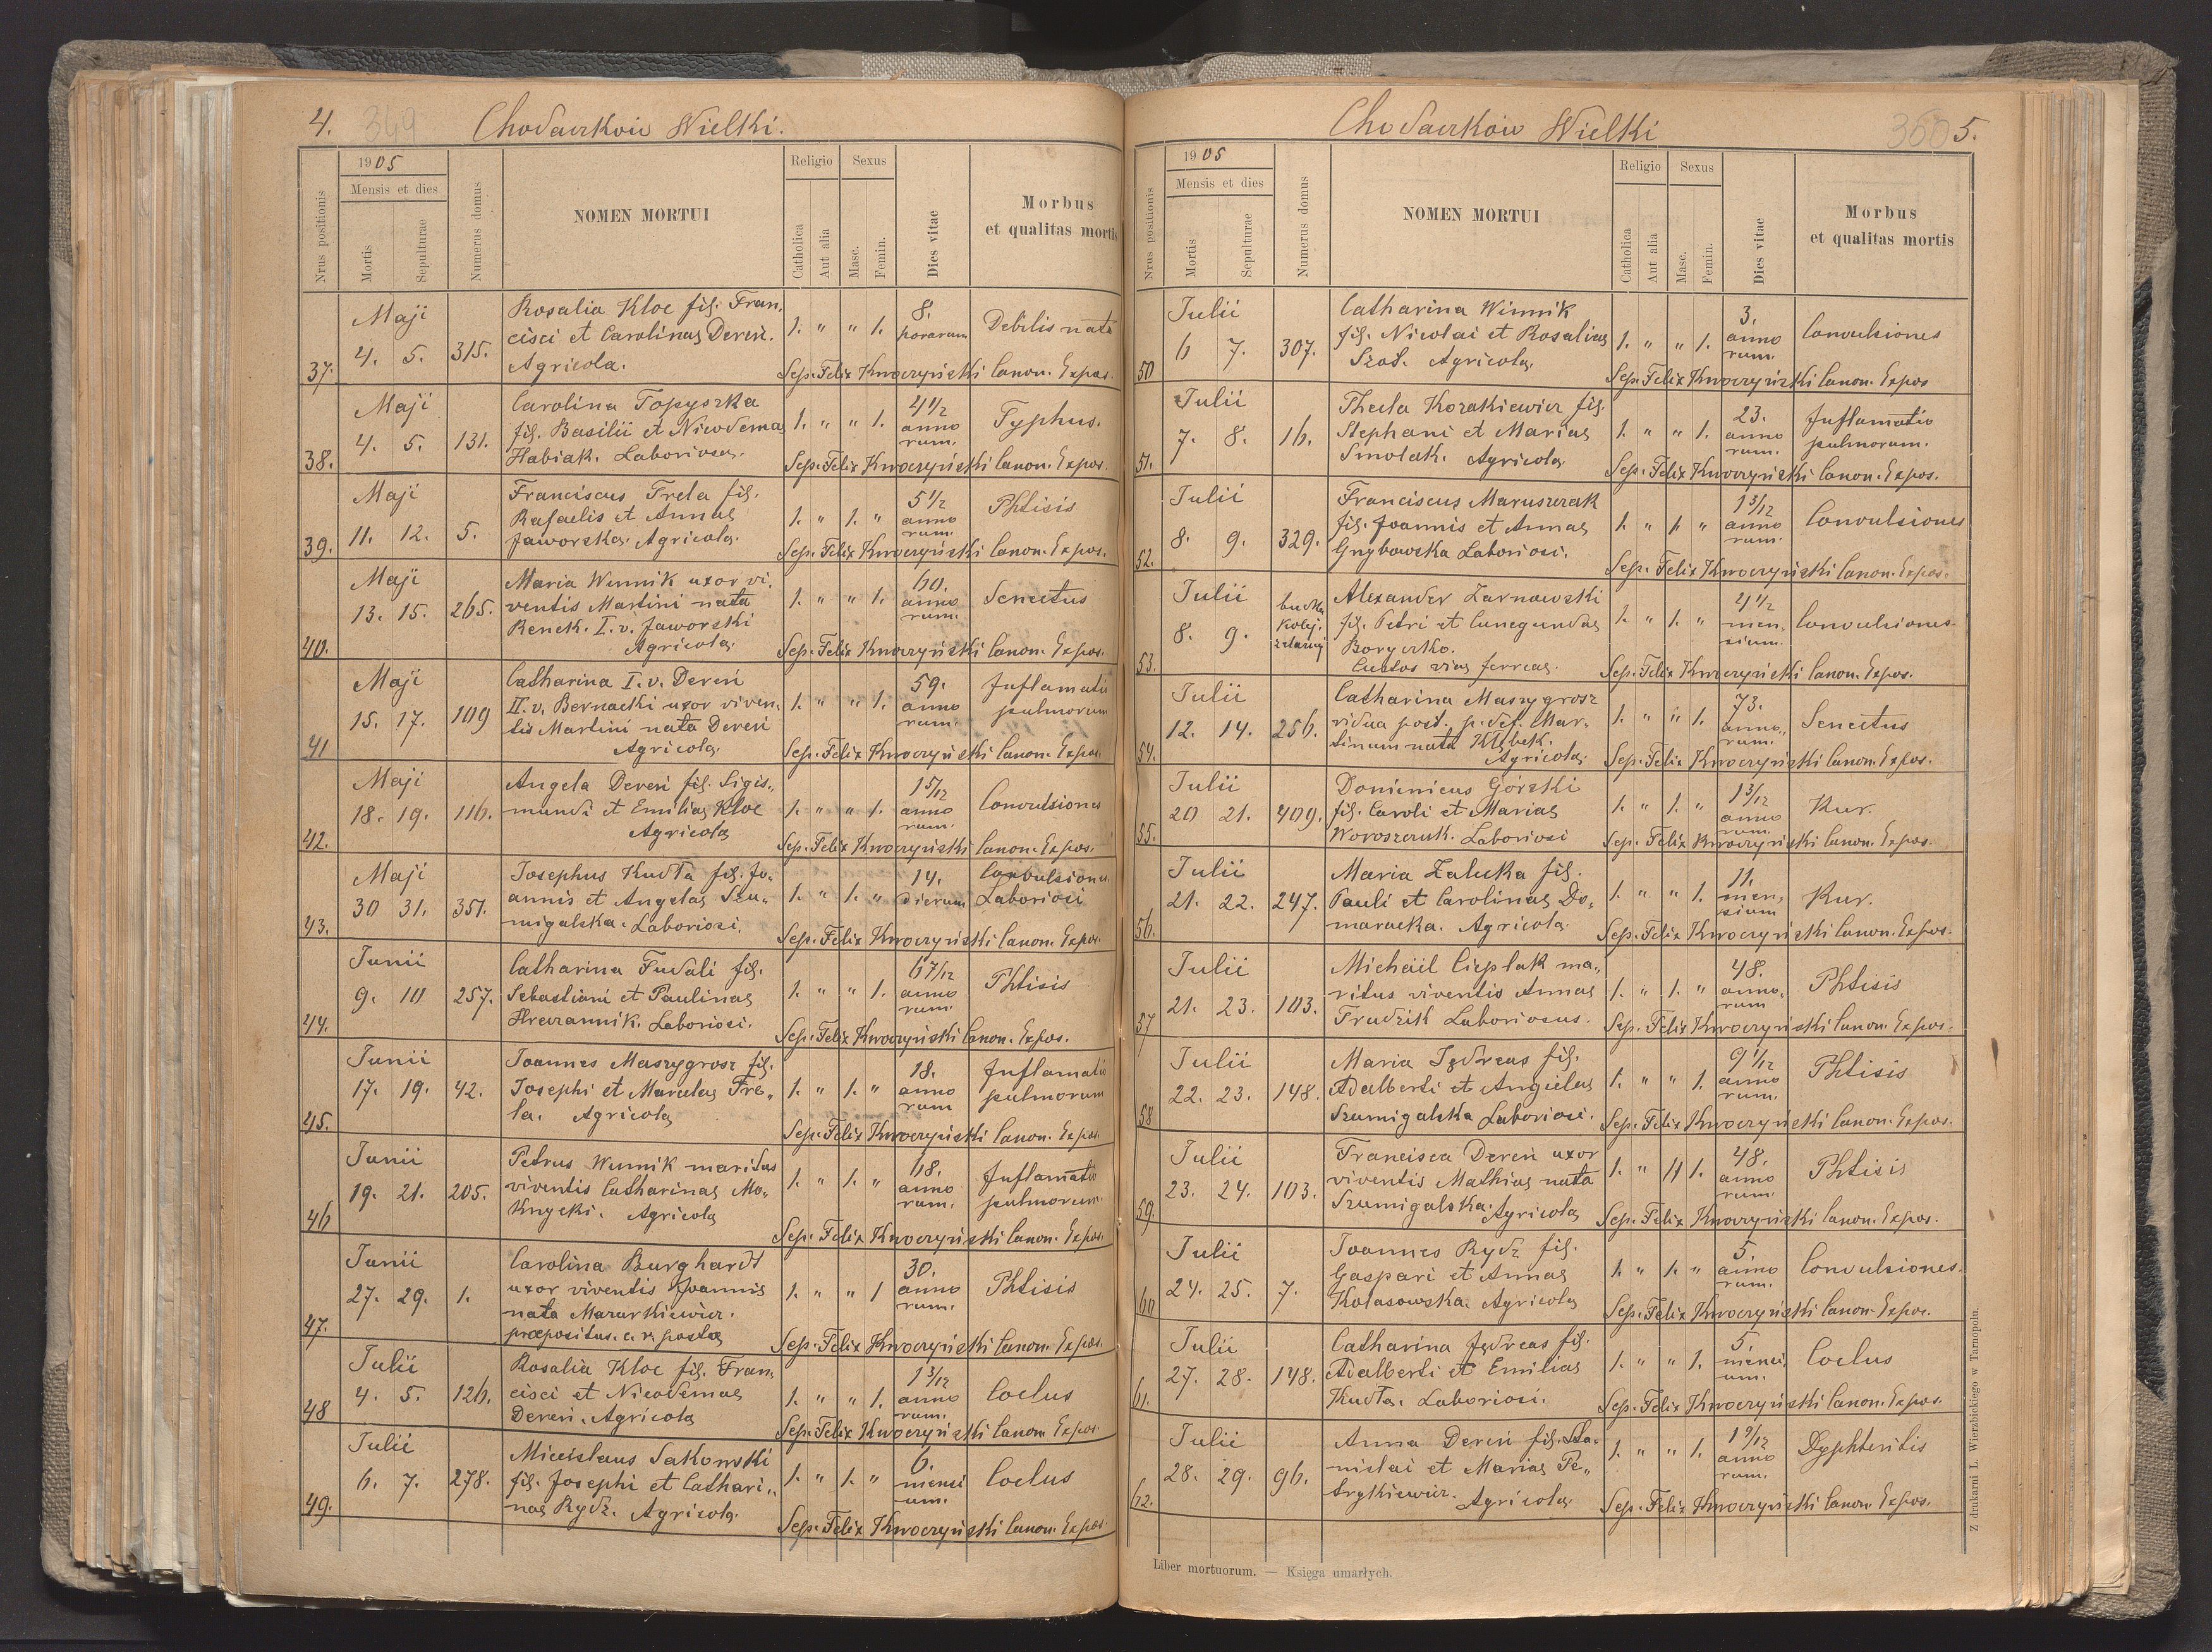 4. 349 Chodaczków Wielki.
1905
Mensis et dies
Nrus positionis
Mortis
Sepulturae
Numerus domus
NOMEN MORTUI
Religio
Catholica
Aut alia
Sexus
Masc.
Femin.
Dies vitae
Morbus
et qualitas mortis
Maji
37. 4. 5. 315.
Rosalia Kloc fil. Fran„
cisci et Carolinae Dereń.
Agricola.
1. " " 1.
8.
horarum
Debilis nata
Sep. Felix Kwoczyński Canon. Expos.
Maji
38. 4. 5. 131.
Carolina Topyszka
fil. Basilii et Nicodema
Habiak. Laboriosa.
1. " " 1.
4 1/2
anno
rum.
Typhus.
Sep. Felix Kwoczyński Canon. Expos.
Maji
39. 11. 12. 5.
Franciscus Frela fil.
Rafaelis et Annae
Jaworska. Agricola.
1. " 1. "
5 1/2
anno
rum.
Phtisis
Sep. Felix Kwoczyński Canon. Expos.
Maji
40. 13. 15. 265.
Maria Winnik uxor vi„
ventis Martini nata
Benek. I. v. Jaworski
Agricola.
1. " " 1.
60.
anno
rum.
Senectus
Sep. Felix Kwoczyński Canon. Expos.
Maji
41 15. 17. 109
Catharina I. v. Dereń
II. v. Bernacki uxor viven„
tis Martini nata Dereń
Agricola
1. " " 1.
59.
anno
rum.
Inflamatio
pulmorum
Sep. Felix Kwoczyński Canon. Expos.
Maji
42. 18. 19. 116.
Angela Dereń fil. Sigis„
mundi et Emiliae Kloc
Agricola
1. " " 1.
1 5/12
anno
rum.
Convulsiones
Sep. Felix Kwoczyński Canon. Expos.
Maji
43. 30 31. 351.
Josephus Kudła fil. Jo„
annis et Angelae Szu„
migalska. Laboriosi.
1. " 1. "
14.
dierum
Convulsiones
Laboriosi
Sep. Felix Kwoczyński Canon. Expos.
Junii
44. 9. 10 257.
Catharina Fudali fil.
Sebastiani et Paulinae
Hreczannik. Laboriosi.
1. " " 1.
6 7/12
anno
rum
Phtisis
Sep. Felix Kwoczyński Canon. Expos.
Junii
45. 17. 19. 42.
Joannes Maszygrosz fil.
Josephi et Marcelae Fre„
la. Agricola
1. " 1. "
18.
anno
rum
Inflamatio
pulmorum
Sep. Felix Kwoczyński Canon. Expos.
Junii
46 19. 21. 205.
Petrus Winnik maritus
viventis Catharinae Mo„
Knycki. Agricola
1. " 1. "
48.
anno
rum.
Inflamatio
pulmorum.
Sep. Felix Kwoczyński Canon. Expos.
Junii
47. 27. 29. 1.
Carolina Burghardt
uxor viventis Joannis
nata Mazurkiewicz.
præpositus. c. r. postæ
1. " " 1
30.
anno
rum.
Phtisis
Sep. Felix Kwoczyński Canon. Expos.
Julii
48 4. 5. 126.
Rosalia Kloc fil. Fran„
cisci et Nicodemae
Dereń. Agricola
1. " " 1.
1 3/12
anno
rum.
Coclus
Sep. Felix Kwoczyński Canon Expos.
Julii
49. 6. 7. 278.
Miecislaus Sakowski
fil. Josephi et Cathari„
nae Rydz. Agricola.
1. " 1. "
6.
mensi
um.
Coclus
Sep. Felix Kwoczyński Canon. Expos.
Chodaczków Wielki 350 5.
1905
Mensis et dies
Nrus positionis
Mortis
Sepulturae
Numerus domus
NOMEN MORTUI
Religio
Catholica
Aut alia
Sexus
Masc.
Femin.
Dies vitae
Morbus
et qualitas mortis
Julii
50 6 7. 307.
Catharina Winnik
fil. Nicolai et Rosaliae
Szod. Agricola.
1. " " 1.
3.
anno
rum.
Convulsiones
Sep. Felix Kwoczyński Canon. Expos
Julii
51. 7. 8. 16.
Thecla Kozakiewicz fil.
Stephani et Mariae
Smolak. Agricola.
1. " " 1.
23.
anno
rum.
Inflamatio
pulmorum.
Sep. Felix Kwoczyński Canon. Expos.
Julii
52. 8. 9. 329.
Franciscus Maruszczak
fil. Joannis et Annae
Grybowska Laboriosi.
1. " 1. "
1 3/12
anno
rum.
Convulsiones
Sep. Felix Kwoczyński Canon. Expos.
Julii
53. 8. 9.
budka
Kolej.
żelaznej
Alexander Zarnowski
fil. Petri et Cunegundae
Boryczko.
Custos viae ferreae.
1. " 1. "
4 1/2
men„
sium.
Convulsiones
Sep. Felix Kwoczyński Canon. Expos.
Julii
54. 12. 14. 256.
Catharina Maszygrosz
vidua post. p. def. Mar„
tinum nata Kłębek.
Agricola.
1. " " 1.
73.
anno„
rum.
Senectus
Sep. Felix Kwoczyński Canon. Expos.
Julii
55. 20 21. 409.
Dominicus Górski
fil. Caroli et Mariae
Woroszczuk. Laboriosi
1. " 1. "
1 3/12
anno
rum.
Kur.
Sep. Felix Kwoczyński Canon. Expos.
Julii
56. 21. 22. 247.
Maria Załuka fil.
Pauli et Carolinae Do„
maracka. Agricola.
1. " " 1.
11.
men„
sium
Kur.
Sep. Felix Kwoczyński Canon. Expos.
Julii
57 21. 23. 103.
Michail Cieplak ma„
ritus viventis Annae
Frudzik Laboriosus.
1. " 1. "
48.
anno„
rum
Phtisis
Sep. Felix Kwoczyński Canon. Expos.
Julii
58 22. 23. 148.
Maria Jędrcas fil.
Adalberti et Angelae
Szumigalska Laboriosi.
1. " " 1.
9 1/12
anno
rum.
Phtisis
Sep. Felix Kwoczyński Canon. Expos.
Julii
59. 23. 24. 103.
Francisca Dereń uxor
viventis Mathiae nata
Szumigalska. Agricola
1. " " 1.
48.
anno
rum.
Phtisis
Sep. Felix Kwoczyński Canon. Expos.
Julii
60 24. 25. 7.
Joannes Rydz fil.
Gaspari et Annae
Kolasowska. Agricola
1. " 1. "
5.
anno
rum.
Convulsiones.
Sep. Felix Kwoczyński Canon. Expos.
Julii
61. 27. 28. 148.
Catharina Jędrcas fil.
Adalberti et Emiliae
Kudła. Laboriosi.
1. " " 1.
5.
mensi
um.
Coclus
Sep. Felix Kwoczyński Canon. Expos.
Julii
62. 28. 29. 96.
Anna Dereń fil. Sta„
nislai et Mariae Pe„
trykiewicz. Agricola.
1. " " 1.
1 9/12
anno
rum.
Dyphteritis
Sep. Felix Kwoczyński Canon Expos.
Liber mortuorum. — Księga umarłych.
Z drukarni L. Wierzbickiego w Tarnopolu.